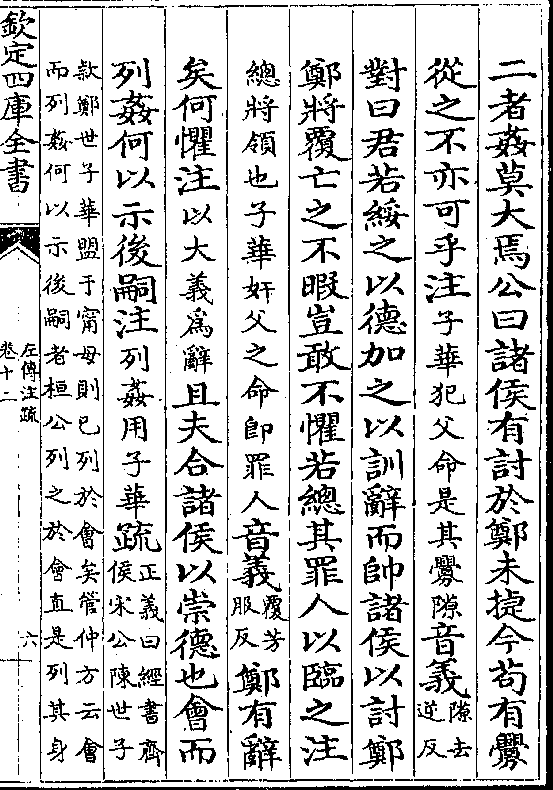 二者姦莫大焉公曰諸侯有討於鄭未捷今苟有釁
從之不亦可乎注子華犯父命是其釁隙音義隙去逆反
對曰君若綏之以德加之以訓辭而帥諸侯以討鄭
鄭將覆亡之不暇豈敢不懼若總其罪人以臨之注
總將領也子華奸父之命即罪人音義覆芳服反鄭有辭
矣何懼注以大義為辭且夫合諸侯以崇德也會而
列姦何以示後嗣注列姦用子華疏正義曰經書齊侯宋公陳世子
款鄭世子華盟于甯母則已列於會矣管仲方云會
而列姦何以示後嗣者桓公列之於會直是列其身
欽定四庫全書
左傳注疏
卷十二
六